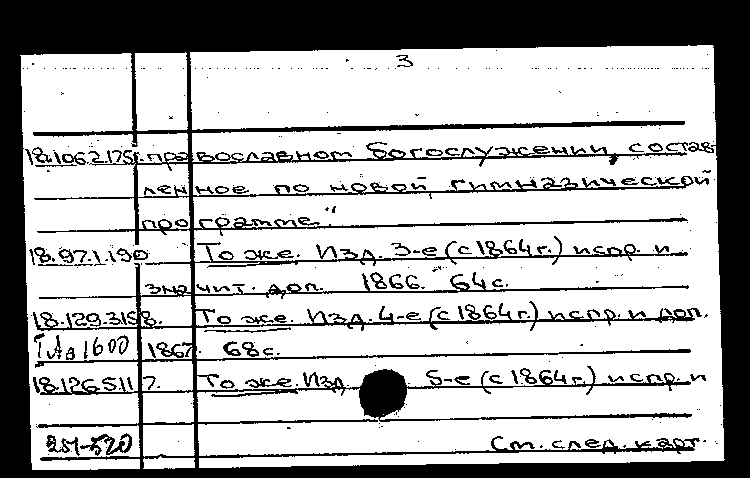 3
18.106.2.175. православном богослужении, состав-
ленное по новой гимназической
программе."
18.97.1.190 То же. Изд. 3-е (с 1864 г.) испр. и
значит. доп. 1866. 64 с.
18.129.3.158. То же. Изд. 4-е (с 1864 г.) испр. и доп.
1867. 68 с.
18.126.5.117. То же. Изд. 5-е (с 1864 г.) испр. и
251-520 См. след. карт.